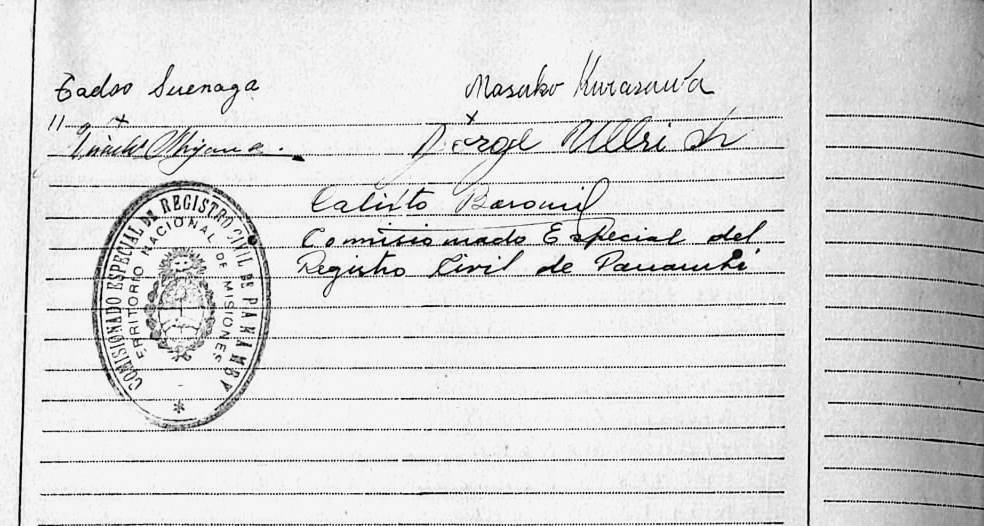 Tadso Suenaga
Masako Kurasawa
Jorge Ullrich
Calisto
Comisionado Especial del
Registro Civil de Panambi
COMISIONADO ESPECIAL DE REGISTRO CIVIL DE PANAMBY
TERRITORIO NACIONAL DE MISIONES